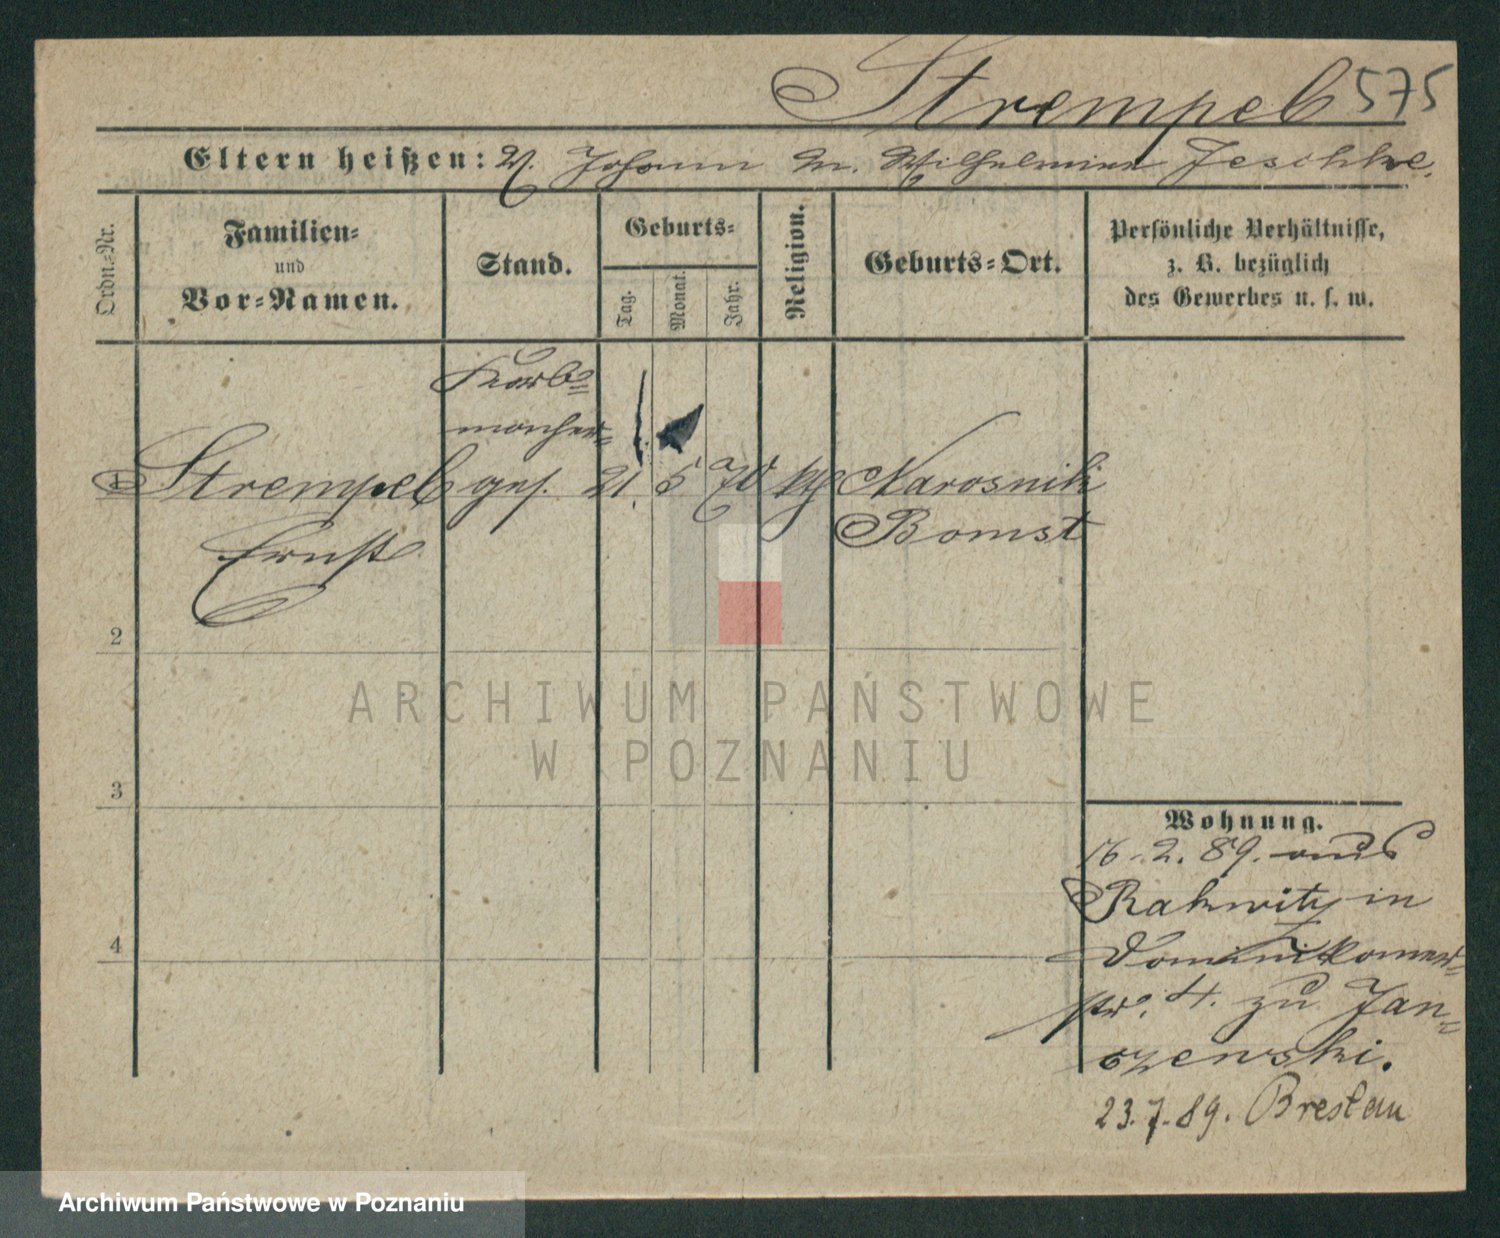 Strempel 575
Eltern heißen: V. Johann M. Wilhelmine Jeschke.
Ordn.-Nr.
Familien-
und
Vor-Namen.
Stand.
Geburts-
Tag.
Monat.
Jahr.
Religion.
Geburts-Ort.
Persönliche Verhältnisse,
z. B. bezüglich
des Gewerbes u. s. w.
Korb-
macher-
1 Strempel ges. 21. 5 70 Narosnik
Ernst
Bomst
2
3
4
ARCHIWUM PAŃSTWOWE
W POZNANIU
Wohnung.
16.2.89. aus
Rakwitz in
Dominikaner-
str. 4. zu Jan-
czewski.
23.7.89. Breslau
Archiwum Państwowe w Poznaniu